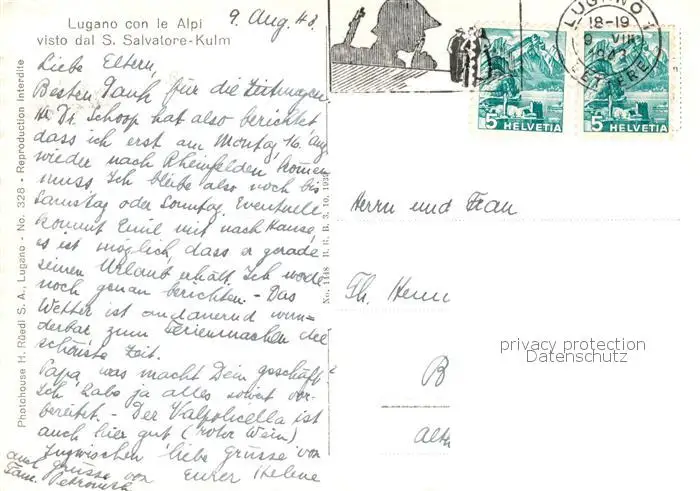 Lugano con le Alpi
visto dal S. Salvatore-Kulm
9. Aug. 43.
Liebe Eltern,
Besten Dank für die Zeitungen.
H. Dr. Schoop hat also berichtet
dass ich erst am Montag, 16. Aug.
wieder nach Rheinfelden kommen
muss. Ich bleibe also noch bis
Samstag oder Sonntag. Eventuell
kommt Emil mit nach Hause,
es ist möglich, dass er gerade
seinen Urlaub erhält. Ich werde
noch genau berichten. - Das
Wetter ist andauernd wun-
derbar, zum Ferienmachen die
schönste Zeit.
Papa, was macht Dein Geschäft?
Ich habe ja alles soweit vor-
bereitet. - Der Valpolicella ist
auch hier gut (roter Wein)
Inzwischen liebe Grüsse von
Eurer Helene
auch Grüsse von
Fam.
Photohouse H. Rüedi S. A., Lugano - No. 328 - Reproduction interdite
No. 1148 B. R. B. 3. 10. 1939
LUGANO 1
18-19
9. VIII
LETTERE
5 HELVETIA
5 HELVETIA
Herrn und Frau
Th.
B
privacy protection
Datenschutz